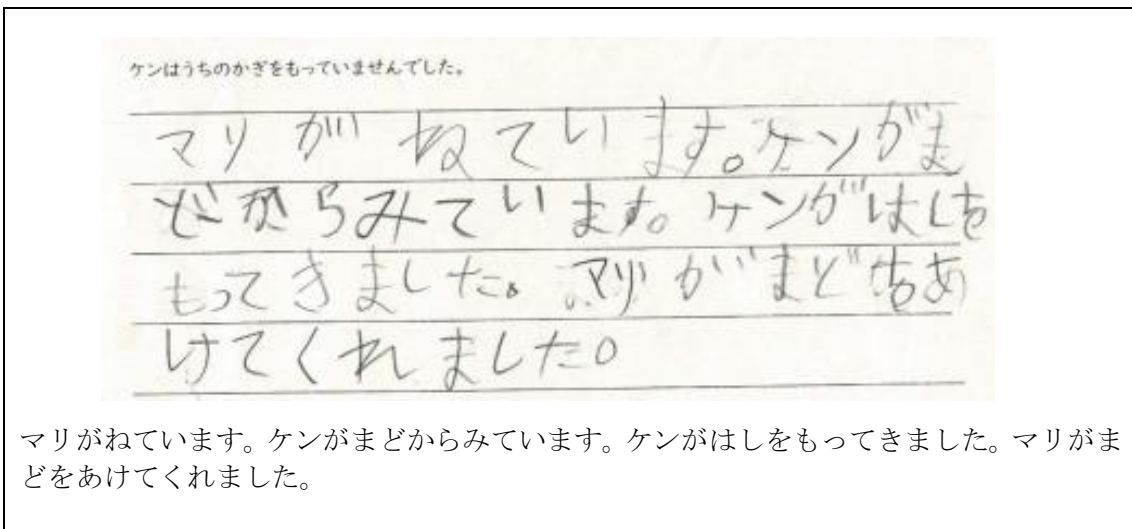 ケンはうちのかぎをもっていませんでした。
マリがねています。ケンがま
どからみています。ケンがはしを
もってきました。マリがまどをあ
けてくれました。
マリがねています。ケンがまどからみています。ケンがはしをもってきました。マリがま
どをあけてくれました。